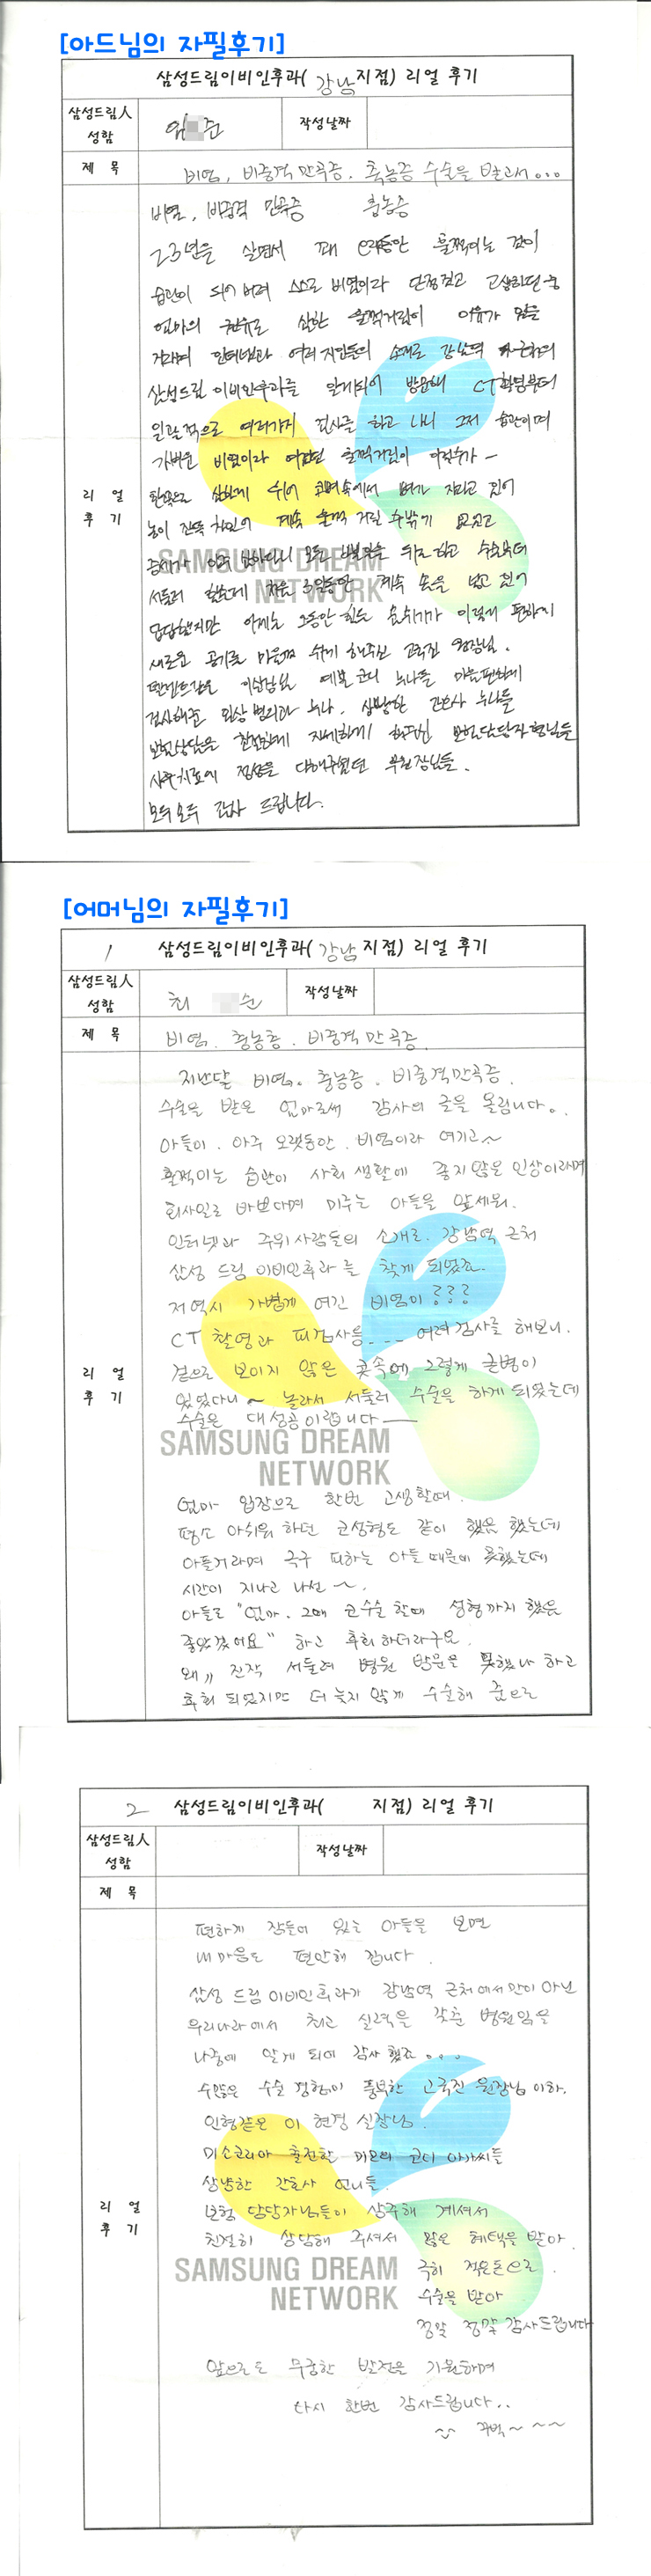 [아드님의 자필후기]
삼성드림이비인후과( 강남 지점) 리얼 후기
삼성드림人
성함
임 준
작성날짜
제 목
비염, 비중격 만곡증, 축농증 수술을 받고서...
비염, 비중격 만곡증 축농증
23년을 살면서 꽤 오랫동안 훌쩍이는 것이
습관이 되어 버려 스스로 비염이라 단정짓고 고생하던 중
엄마의 권유로 심한 훌쩍거림이 이유가 있을
거라며 인터넷과 여러 지인들의 소개로 강남역 근처의
삼성드림 이비인후과를 알게되어 방문해 CT촬영부터
일괄적으로 여러가지 검사를 하고 나니 그저 습관이며
가벼운 비염이라 여겼던 훌쩍거림이 아뿔싸~
한쪽으로 심하게 휘어 코벽속에서 뼈가 자라고 있어
농이 잔뜩 차있어 계속 훌쩍 거릴 수밖에 없었고
리 얼
후 기
SAMSUNG DREAM
NETWORK
서둘러 했는데 처음 3일동안 계속 솜을 넣고 있어
답답했지만 이제는 그동안 힘든 숨쉬기가 이렇게 편하게
새로운 공기로 마음껏 쉬게 해주신 고국진 원장님.
이실장님 예쁜 코디 누나들 마음편하게
검사해준 임상병리과 누나, 상냥한 간호사 누나들
보험상담은 친절하게 자세하게 해주신 보험담당자 형님들
사후치료에 정성을 다해주셨던 부원장님들.
모두모두 감사 드립니다.
[어머님의 자필후기]
1 삼성드림이비인후과( 강남 지점) 리얼 후기
삼성드림人
성함
최 순
작성날짜
제 목
비염. 축농증. 비중격 만곡증.
지난달 비염. 축농증. 비중격만곡증.
수술을 받은 엄마로써 감사의 글을 올립니다.
아들이. 아주 오랫동안. 비염이라 여기고~
훌쩍이는 습관이 사회 생활에 좋지 않은 인상이라며
회사일로 바쁘다며 미루는 아들을 앞세워.
인터넷과 주위 사람들의 소개로. 강남역 근처
삼성 드림 이비인후과를 찾게 되었죠.
저 역시 가볍게 여긴 비염이 ???
CT 촬영과 피검사등--- 여러 검사를 해보니.
겉으로 보이지 않은 콧속에 그렇게 큰병이
있었다니~ 놀라서 서둘러 수술을 하게 되었는데
수술은 대성공이랍니다—
리 얼
후 기
SAMSUNG DREAM
NETWORK
엄마 입장으로 한번 고생할때.
평소 아쉬워 하던 코성형도 같이 했음 했는데
아플거라며 극구 피하는 아들 때문에 못했는데
시간이 지나고 나선~.
아들도 "엄마. 그때 코수술 할때 성형까지 했음
좋았겠어요" 하고 후회 하더라구요.
왜,, 진작 서둘러 병원 방문을 못했나 하고
후회 되었지만 더 늦지 않게 수술해 줌으로
2 삼성드림이비인후과( 지점) 리얼 후기
삼성드림人
성함
작성날짜
제 목
편하게 잠들어 있는 아들을 보면
내 마음도 편안해 집니다.
삼성 드림 이비인후과가 강남역 근처에서만이 아닌
우리나라에서 최고 실력을 갖춘 병원임을
나중에 알게 되어 감사 했죠...
수많은 수술 경험이 풍부한 고국진 원장님 이하.
인형같은 이 현정 실장님.
미스코리아 출전한 미모의 코디 아가씨들
상냥한 간호사 언니들.
보험 담당자님들이 상주해 계셔서
친절히 상담해 주셔서 많은 혜택을 받아.
리 얼
후 기
극히 적은돈으로.
수술을 받아
정말 정말 감사드립니다
SAMSUNG DREAM
NETWORK
앞으로도 무궁한 발전을 기원하며
다시 한번 감사드립니다..
꾸벅~ ~ ~